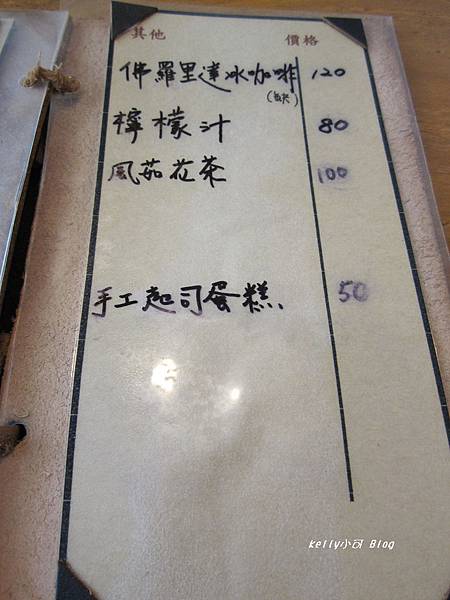 其他 價格
佛羅里達冰咖啡 120
檸檬汁 80
風茹花茶 100
手工起司蛋糕 50
kelly小可 Blog